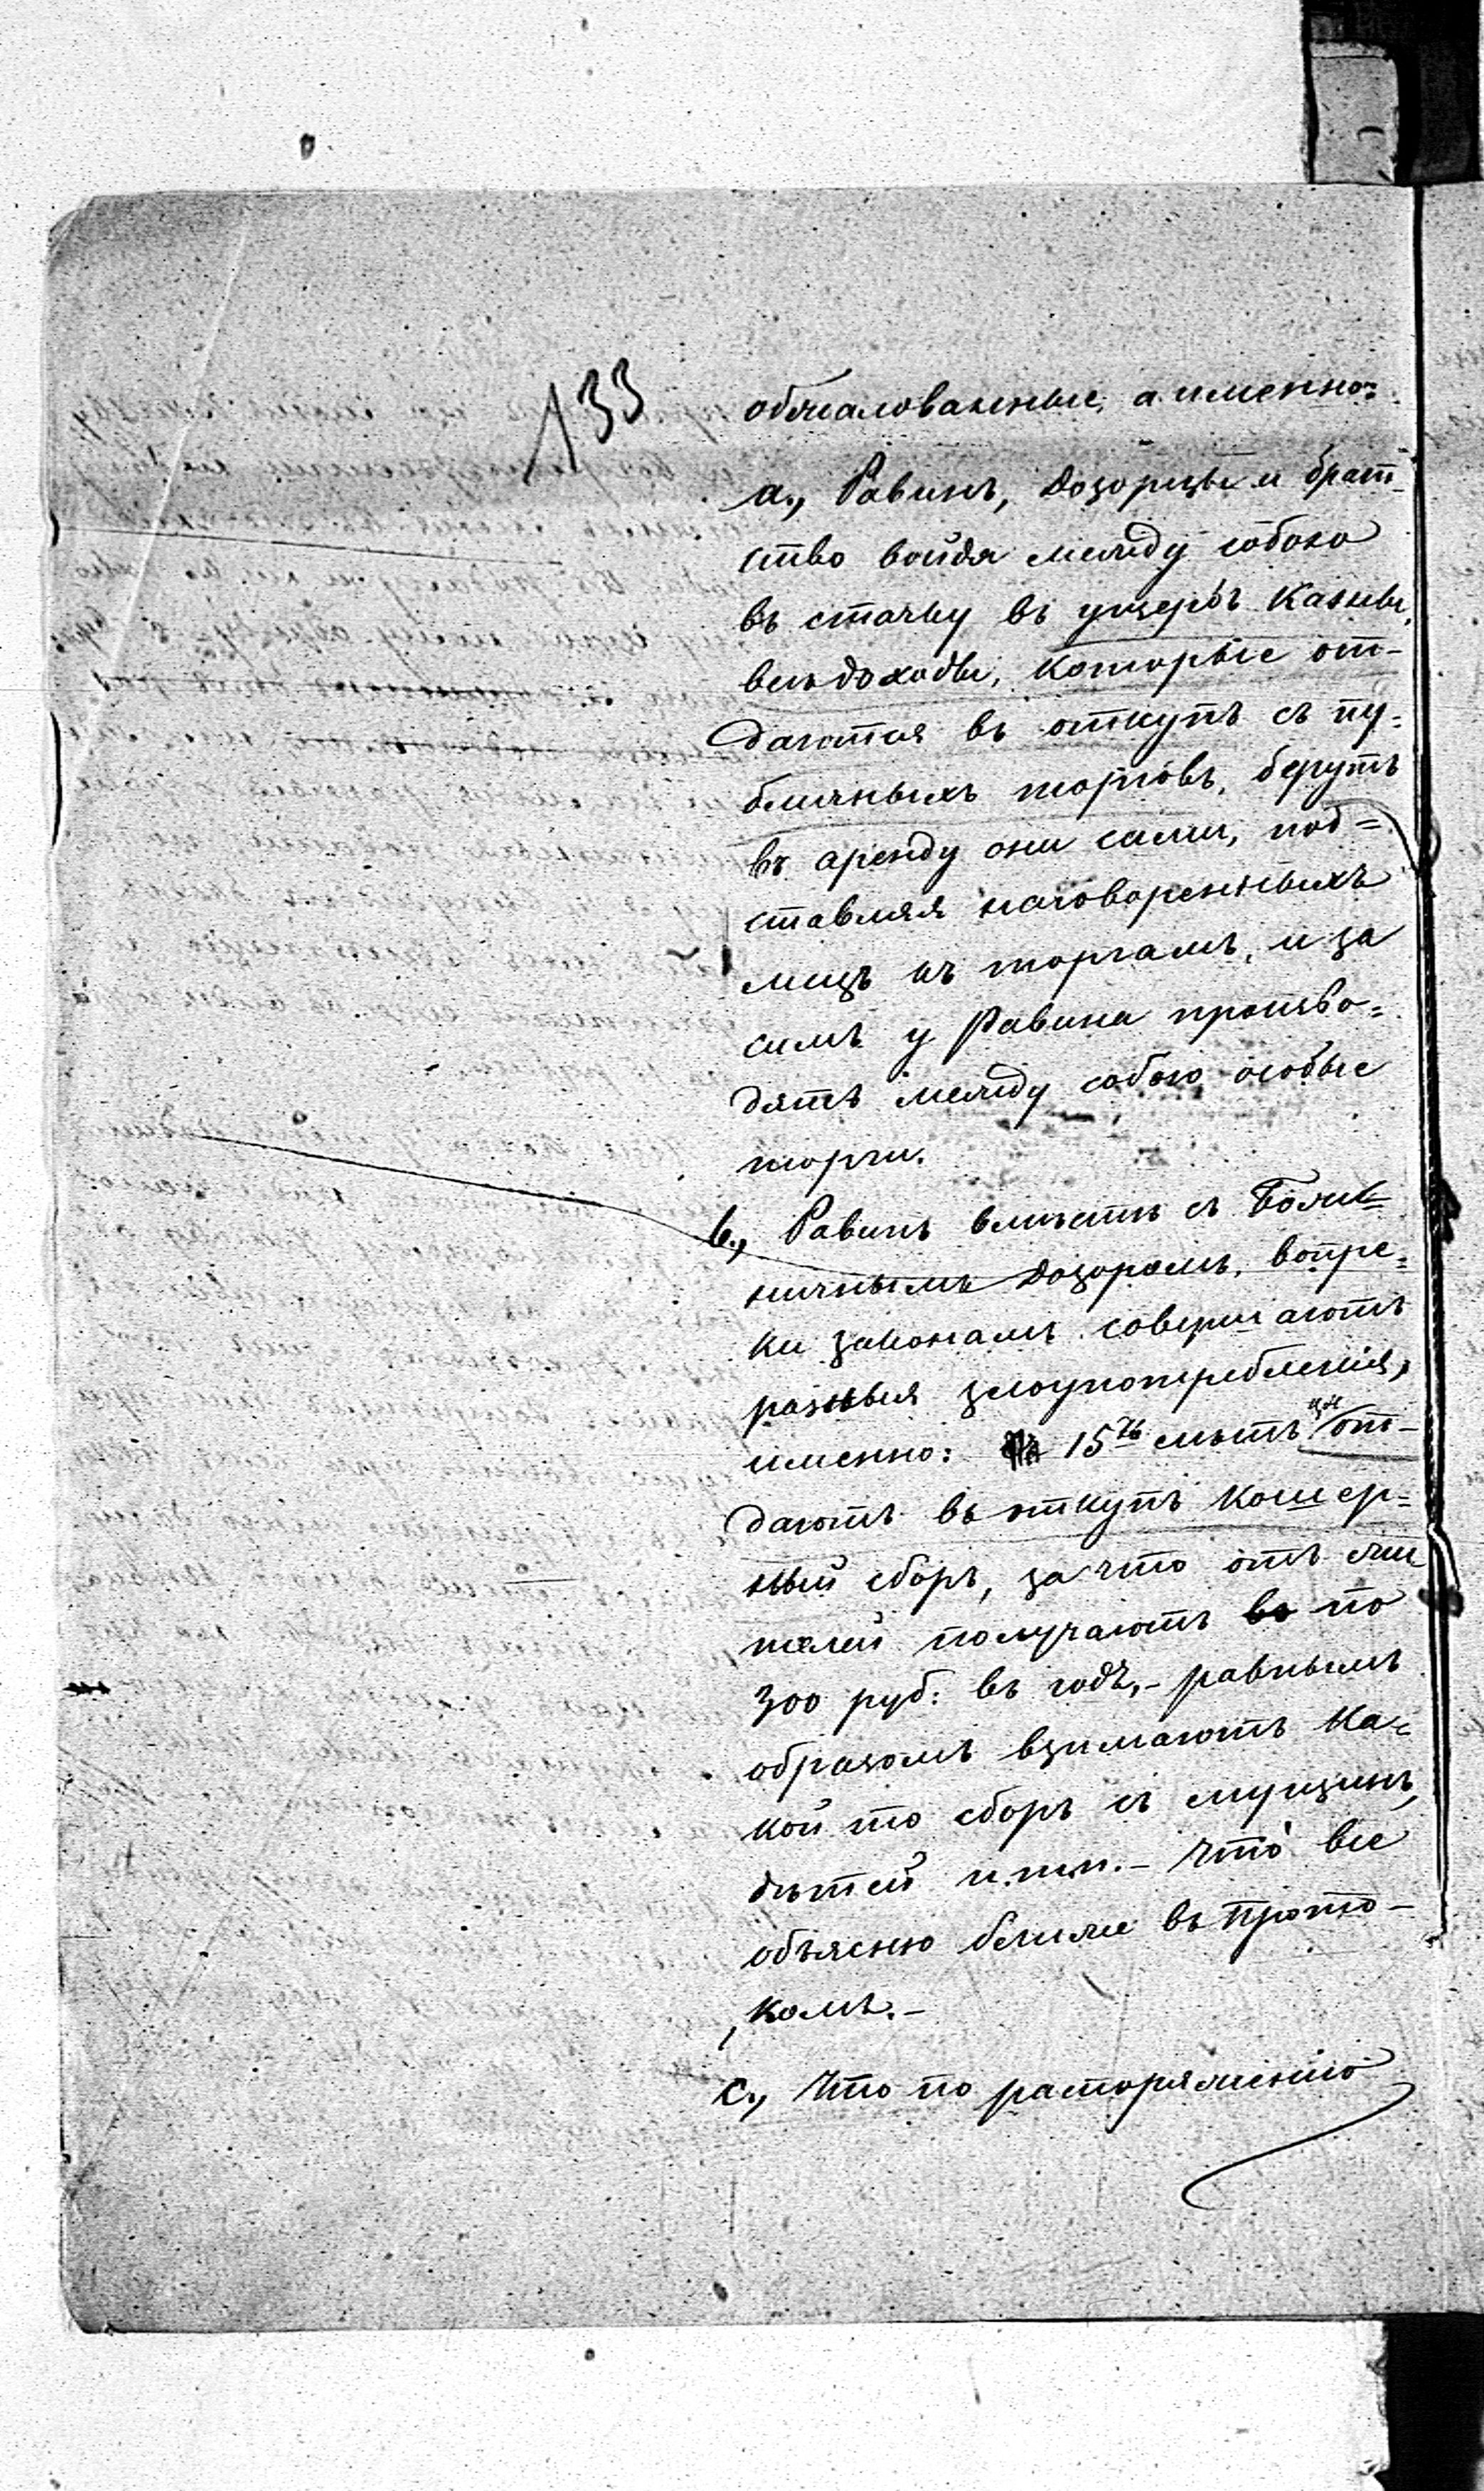 133
обжалованные, а именно:
а., Равинъ, дозорцы и брат-
ство войдя между собою
въ стачку въ ущербъ казны,
всѣ доходы, которые от-
даются въ откупъ съ пу-
бличныхъ торговъ, берутъ
въ аренду они сами, под=
ставляя наговоренныхъ
лицъ къ торгамъ, и за
симъ у Равина произво=
дятъ между собою особые
торги.
b., Равинъ вмѣстѣ съ Божни-
ничнымъ дозоромъ, вопре=
ки законамъ совершаютъ
разныя злоупотребленія,
именно: 15 лѣтъ от-
даютъ въ откупъ кошер=
ный сборъ, за что отъ жи
телей получаютъ по
300 руб: въ годъ,- равнымъ
образомъ взимаютъ ка-
кой то сборъ съ мущинъ,
дѣтей и.т.п.- Что все
объясню ближе въ прото-
колѣ.-
с., Что по распоряженію